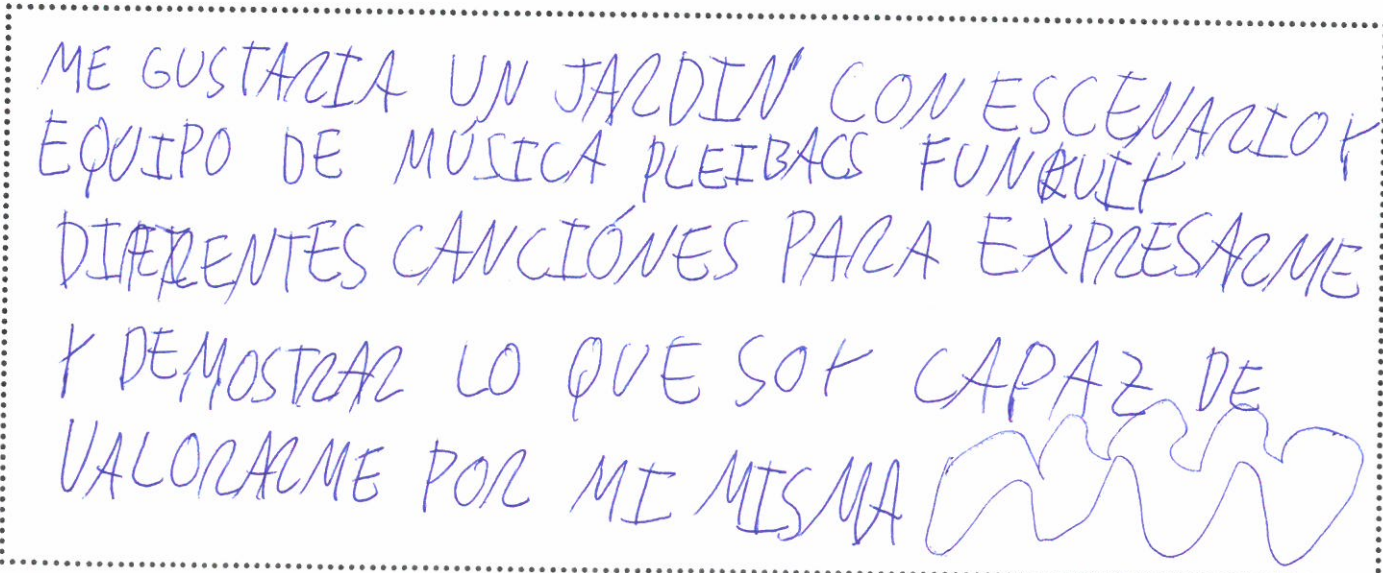 ME GUSTARIA UN JARDIN CON ESCENARIO Y
EQUIPO DE MÚSICA PLEIBACS FUNQUI Y
DIFERENTES CANCIÓNES PARA EXPRESARME
Y DEMOSTRAR LO QUE SOY CAPAZ DE
VALORARME POR MI MISMA